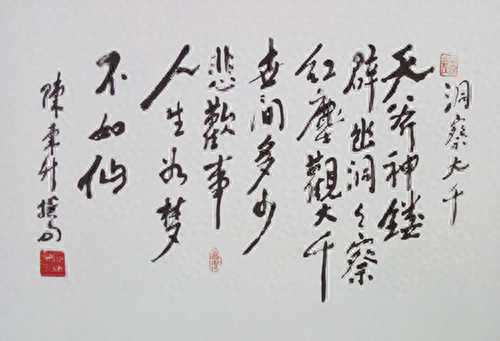 洞察大千
天斧神镂
辟出洞々察
红塵觀大千
世间多少
悲歡事
人生若梦
不如仙
陳東升撰句